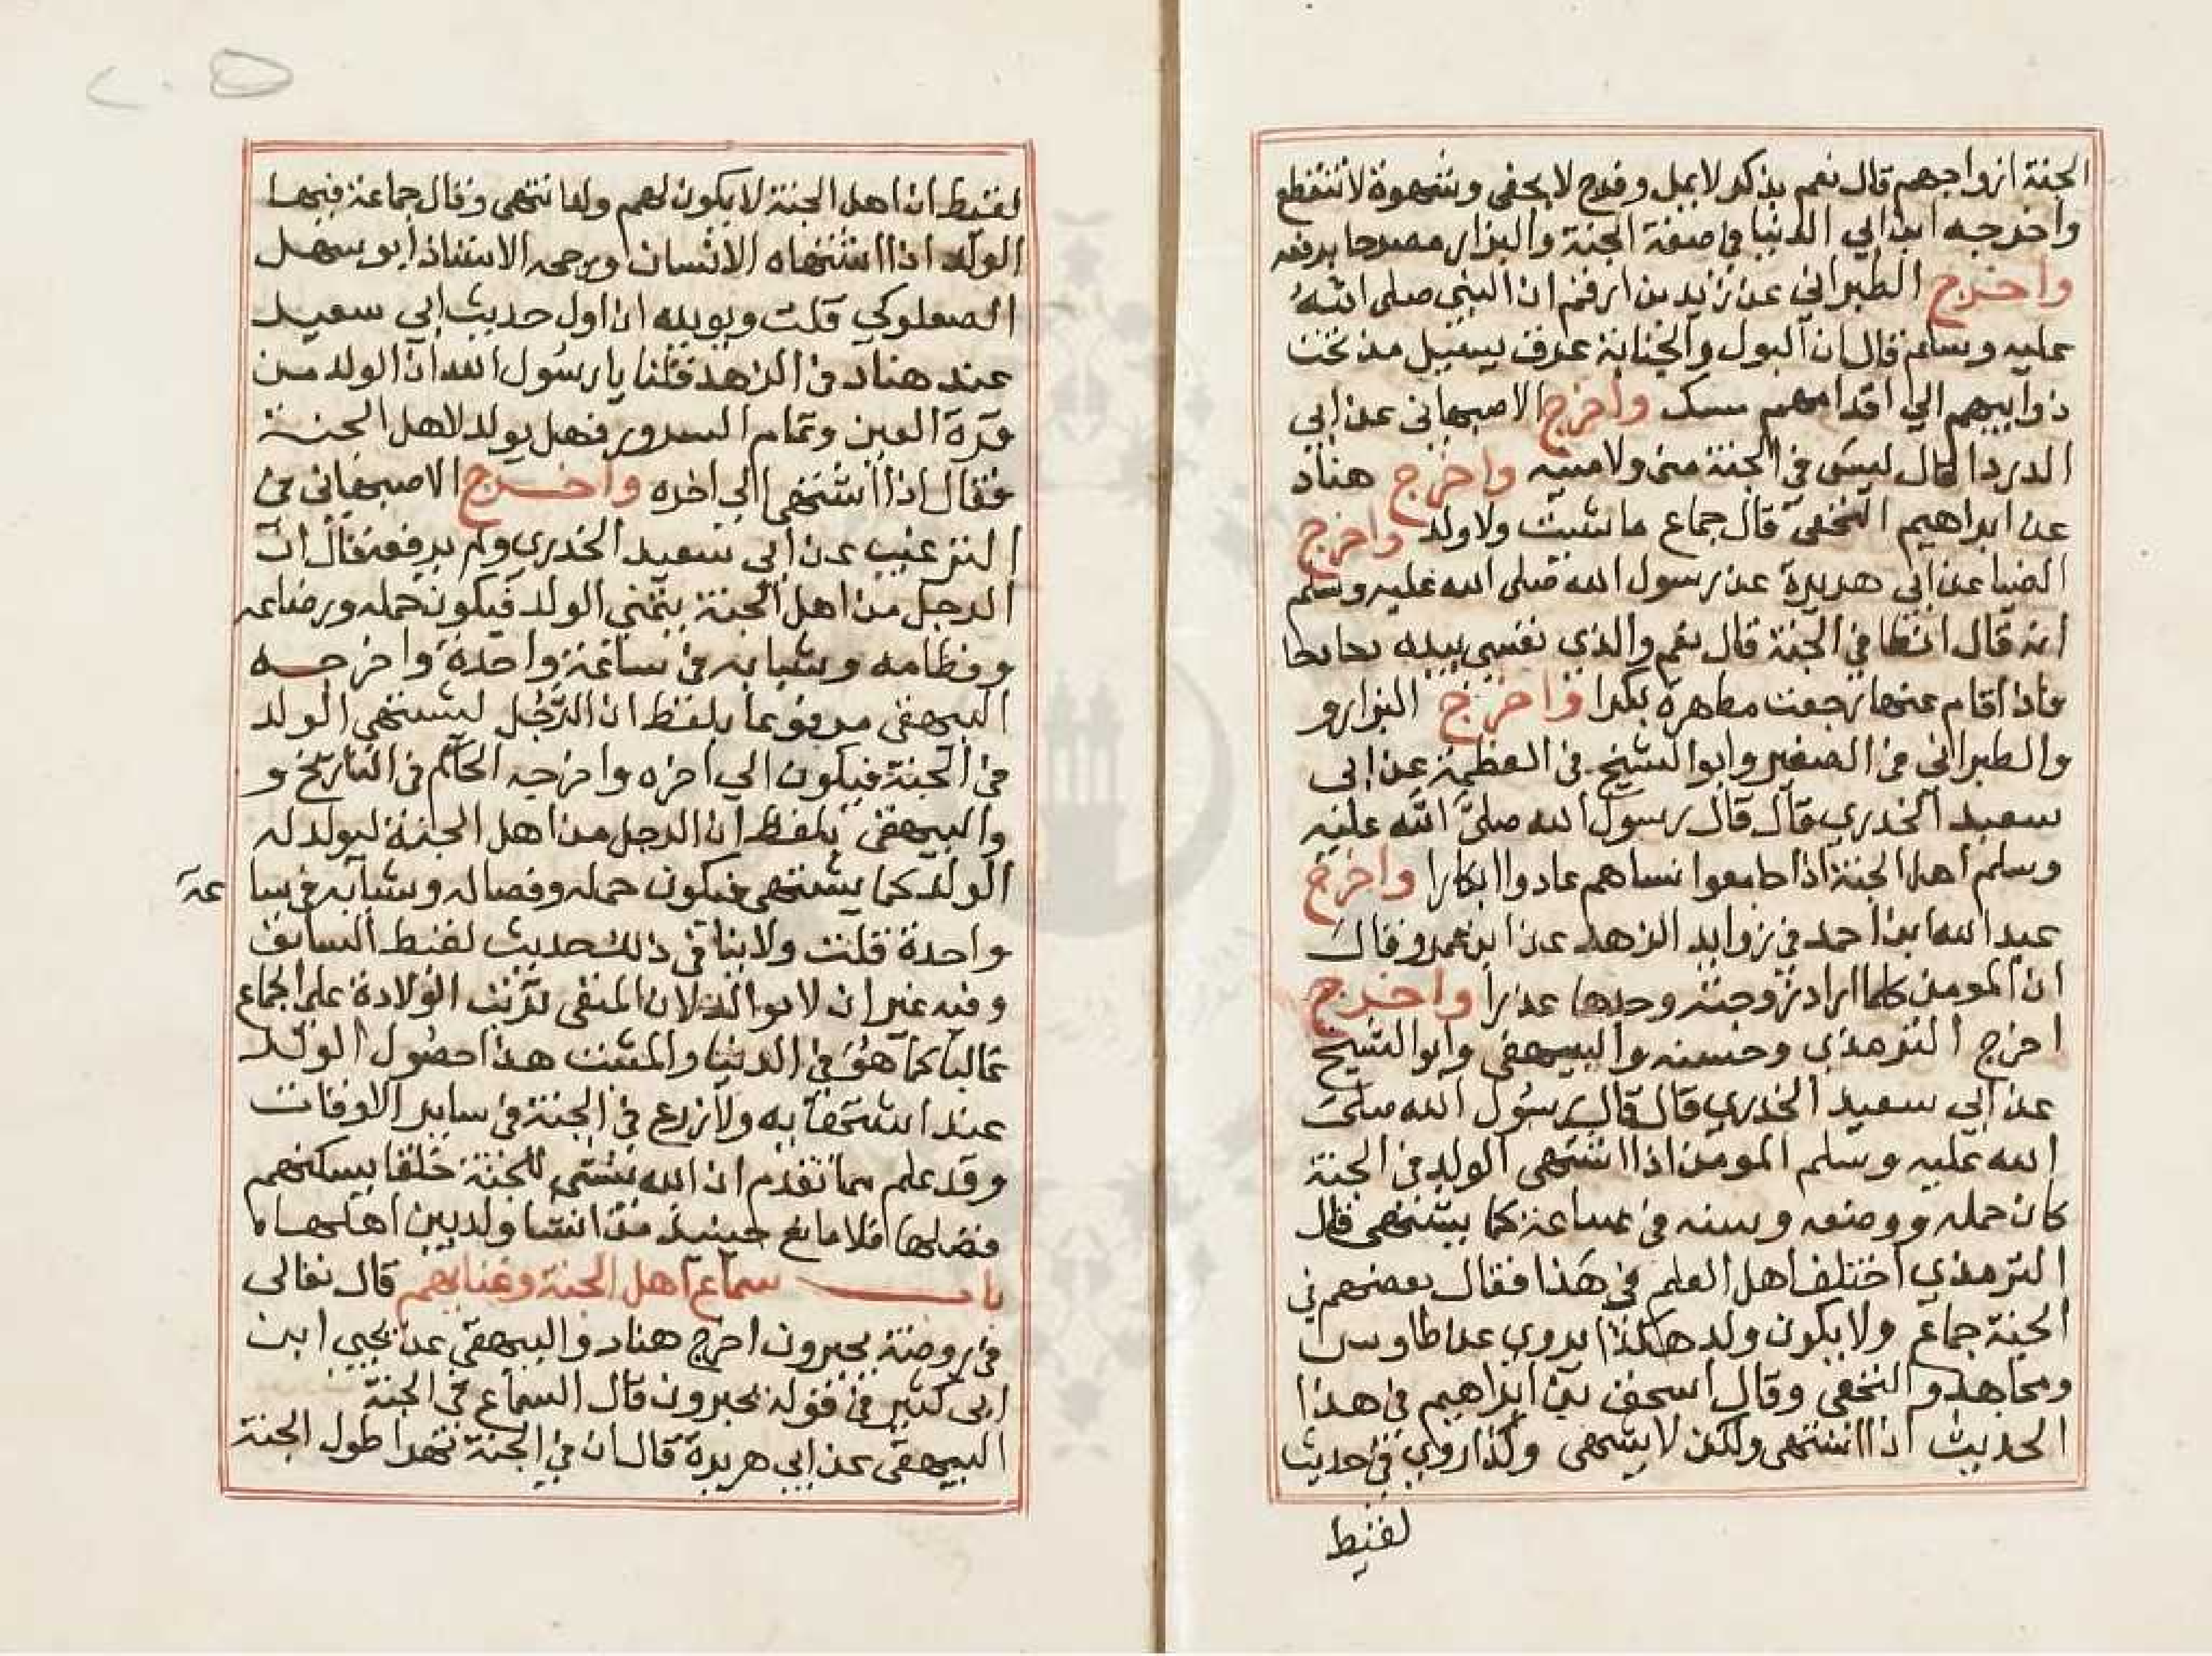 الجنة ازواجهم قال نعم بذكر لا يمل وفرج لا يحفى وشهوة لا تنقطع
واخرجه ابن ابي الدنيا في صفة الجنة والبزار مصرحا برفعه
واخرج الطبراني عن زيد بن ارقم ان النبي صلى الله
عليه وسلم قال ان البول والجنابة عرق يسيل من تحت
ذوايبهم الي اقدامهم مسك واخرج الاصبهاني عن ابي
الدردا قال ليس في الجنة مني ولا منيه واخرج هناد
عن ابراهيم النخعي قال جماع ما شيت ولا ولد واخرج
الضيا عن ابي هريرة عن رسول الله صلى الله عليه وسلم
انه قال انطا في الجنة قال نعم والذي نفسي بيده دحا دحا
فاذا قام عنها رجعت مطهرة بكرا واخرج البزار و
والطبراني في الصغير وابو الشيخ في العظمة عن ابي
سعيد الخدري قال قال رسول الله صلى الله عليه
وسلم اهل الجنة اذا جامعوا نساهم عادوا ابكارا واخرج
عبد الله ابن احمد في زوايد الزهد عن ابن عمرو قال
ان المومن كلما اراد زوجته وجدها عذرا واخرج
اخرج الترمذي وحسنه والبيهقي وابو الشيخ
عن ابي سعيد الخدري قال قال رسول الله صلى
الله عليه وسلم المومن اذا اشتهى الولد في الجنة
كان حمله ووضعه وسنه في ساعة كما يشتهي قال
الترمذي اختلف اهل العلم في هذا فقال بعضهم في
الجنة جماع ولا يكون ولد هكذا يروي عن طاوس
ومجاهد والنخعي وقال اسحق بن ابراهيم في هذا
الحديث اذا اشتهى ولكن لا يشتهي وكذا روي في حديث
لفيط
لفيط ان اهل الجنة لا يكون لهم ولد انتهى وقال جماعة فيها
الولد اذا اشتهاه الانسان ورجحه الاستاذ ابو سهل
الصعلوكي قلت ويويده ان اول حديث ابي سعيد
عند هناد في الزهد قلنا يا رسول الله ان الولد من
قرة العين وتمام السرور فهل يولد لاهل الجنة
فقال اذا اشتهى الي اخره واخرج الاصبهاني في
الترغيب عن ابي سعيد الخدري ولم يرفعه قال ان
الرجل من اهل الجنة يتمنى الولد فيكون حمله ورضاعه
وفظامه وشبابه في ساعة واحدة واخرجه
البيهقي مرفوعا بلفظ ان الرجل ليشتهي الولد
في الجنة فيكون الي اخره واخرجه الحاكم في التاريخ و
والبيهقي بلفظ ان الرجل من اهل الجنة ليولد له
الولد كما يشتهي فيكون حمله وفصاله وشبابه في سا عة
واحدة قلت ولا ينافي ذلك حديث لفيط السابق
وفيه غير ان لا توالد لان المنفي ترتب الولادة على الجماع
غالبا كما هو في الدنيا والمثبت هذا حصول الولد
عند اشتهايه ولا زرع في الجنة في ساير الاوقات
وقد علم مما تقدم ان الله ينشي للجنة خلقا يسكنهم
فضلها فلا مانع حينيذ من انشا ولد بين اهلها
باب سماع اهل الجنة وغنايهم قال تعالى
في روضة يحبرون اخرج هناد والبيهقي عن يحيى ابن
ابي كثير في قوله يحبرون قال السماع في الجنة
البيهقي عن ابي هريرة قال ان في الجنة نهرا طول الجنة